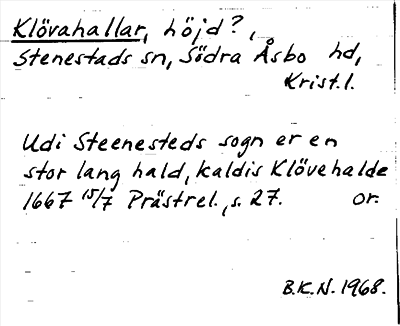 Klövahallar, höjd?,
Stenestads sn, Södra Åsbo hd,
Krist.l.
Udi Steenesteds sogn er en
stor lang hald, kaldis Klövehalde
1667 15/7 Prästrel., s. 27. or.
B.K.N. 1968.